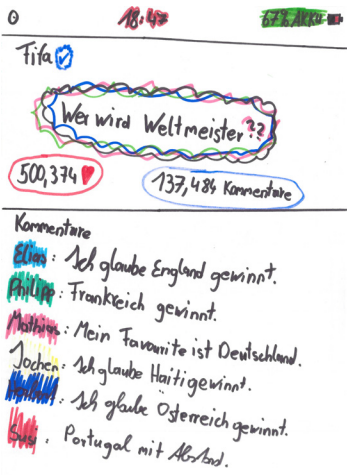 0 18:47 67% AKKU
Fifa
Wer wird Weltmeister??
500,374
137,484 Kommentare
Kommentare
Elias: Ich glaube England gewinnt.
Philipp: Frankreich gewinnt.
Mathias: Mein Favourite ist Deutschland.
Jochen: Ich glaube Haiti gewinnt.
: Ich glaube Österreich gewinnt.
Susi: Portugal mit Abstand.